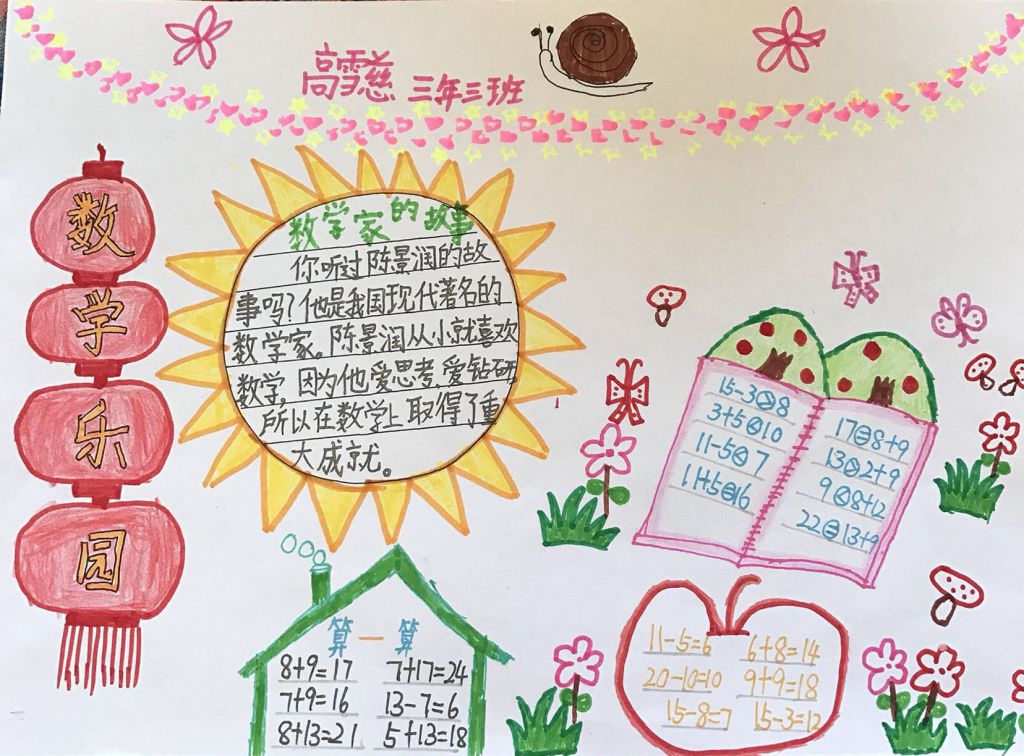 高雪慈 三年三班
数
学
乐
园
数学家的故事
你听过陈景润的故
事吗?他是我国现代著名的
数学家。陈景润从小就喜欢
数学,因为他爱思考、爱钻研,
所以在数学上取得了重
大成就。
15-3>8
3+5<10
11-5<7
11+5<16
17=8+9
13>2+9
9<8+12
22=13+9
算一算
8+9=17 7+17=24
7+9=16 13-7=6
8+13=21 5+13=18
11-5=6 6+8=14
20-10=10 9+9=18
15-8=7 15-3=12